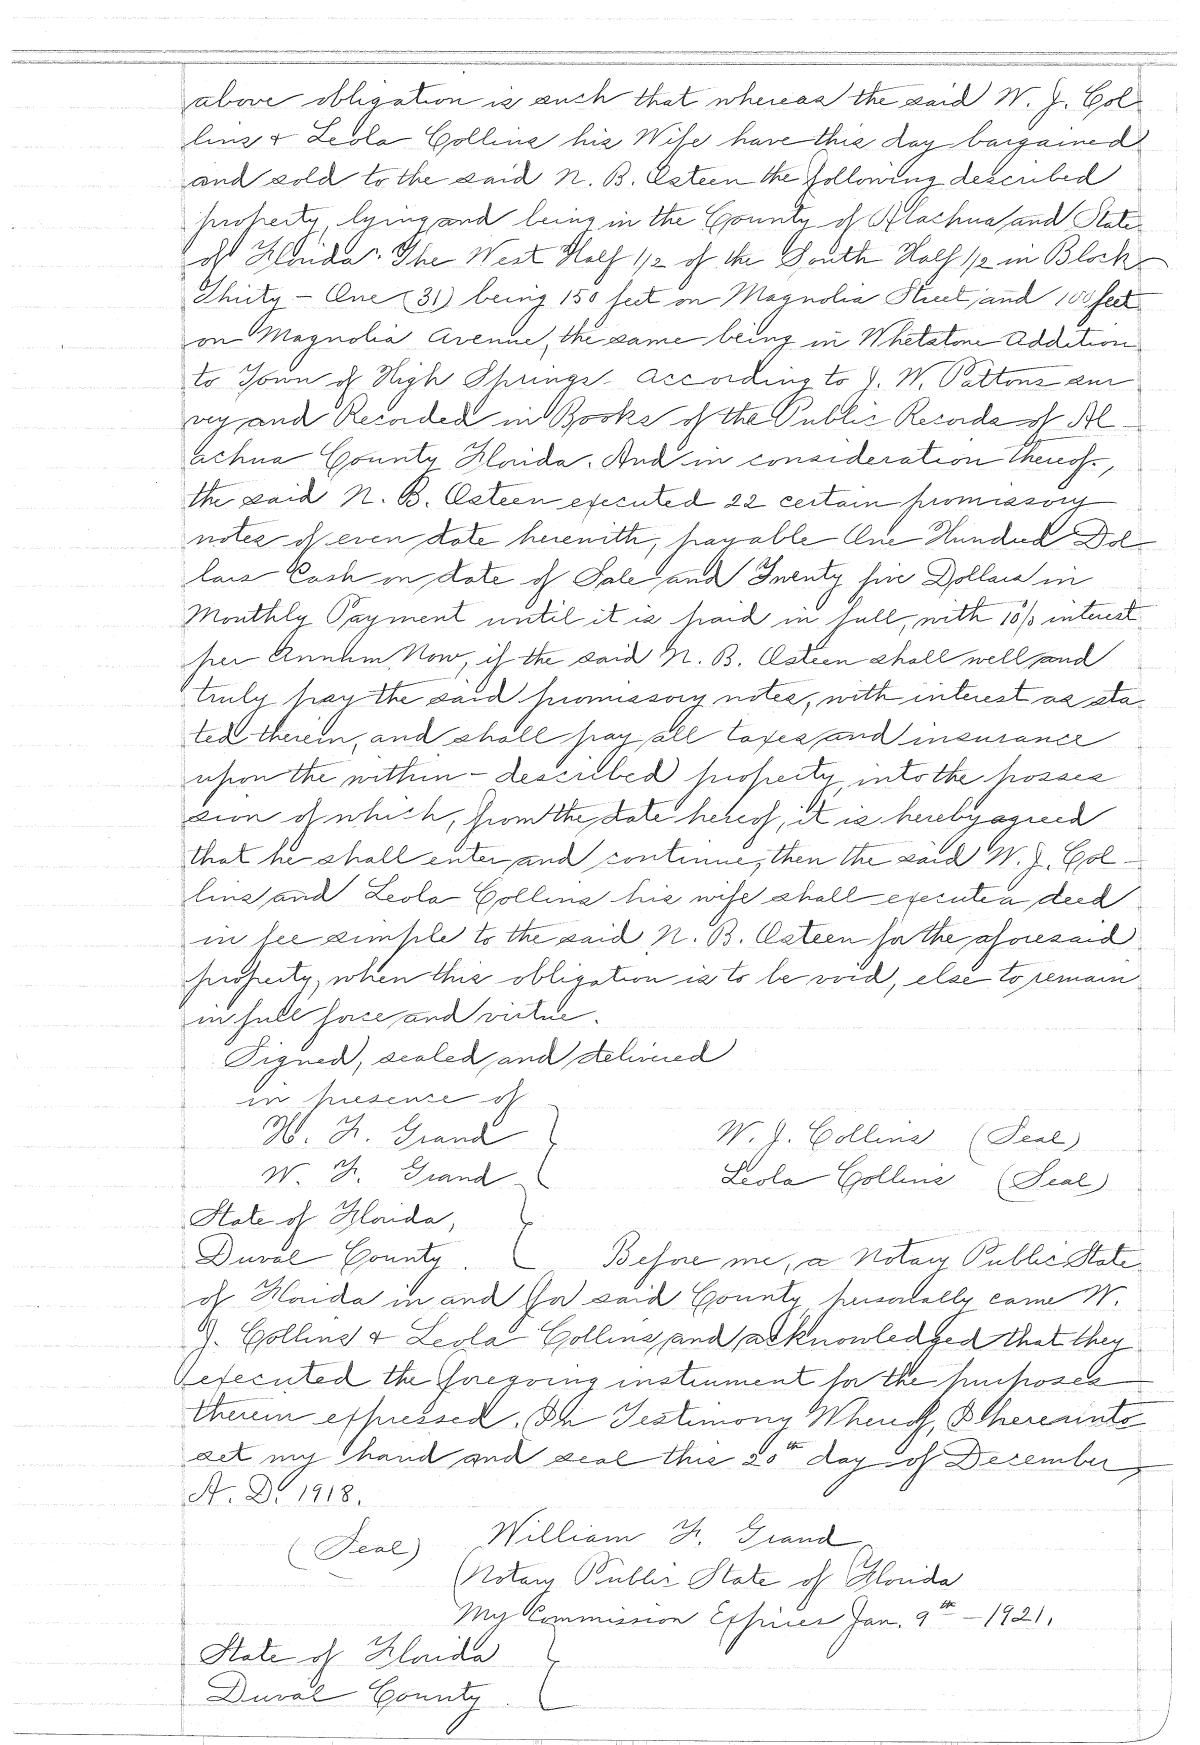 above obligation is such that whereas the said W. J. Col
lins & Leola Collins his Wife have this day bargained
and sold to the said N. B. Osteen the following described
property, lying and being in the County of Alachua and State
of Florida: The West Half 1/2 of the South Half 1/2 in Block
Thirty - One (31) being 150 feet on Magnolia Street, and 100 feet
on Magnolia Avenue, the same being in Whetstone Addition
to Town of High Springs. According to J. W. Pattons sur
vey and Recorded in Books of the Public Records of Al -
achua County Florida. And in consideration thereof,
the said N. B. Osteen executed 22 certain promissory
notes of even date herewith, payable One Hundred Dol
lars Cash on date of Sale and Twenty five Dollars in
Monthly Payment until it is paid in full, with 10% interest
per Annum. Now, if the said N. B. Osteen shall well and
truly pay the said promissory notes, with interest as sta
ted therein, and shall pay all taxes and insurance
upon the within - described property, into the posses
sion of which, from the date hereof, it is hereby agreed
that he shall enter and continue, then the said W. J. Col -
lins and Leola Collins his wife shall execute a deed
in fee simple to the said N. B. Osteen for the aforesaid
property, when this obligation is to be void, else to remain
in full force and virtue.
Signed, sealed and delivered
in presence of
H. F. Grand W. J. Collins (Seal)
W. F. Grand Leola Collins (Seal)
State of Florida,
Duval County. Before me, a Notary Public State
of Florida in and for said County, personally came W.
J. Collins & Leola Collins and acknowledged that they
executed the foregoing instrument for the purposes
therein expressed. In Testimony Whereof, I hereunto
set my hand and seal this 20th day of December,
A. D. 1918.
(Seal) William F. Grand
Notary Public State of Florida
My Commission Expires Jan. 9th - 1921.
State of Florida
Duval County.